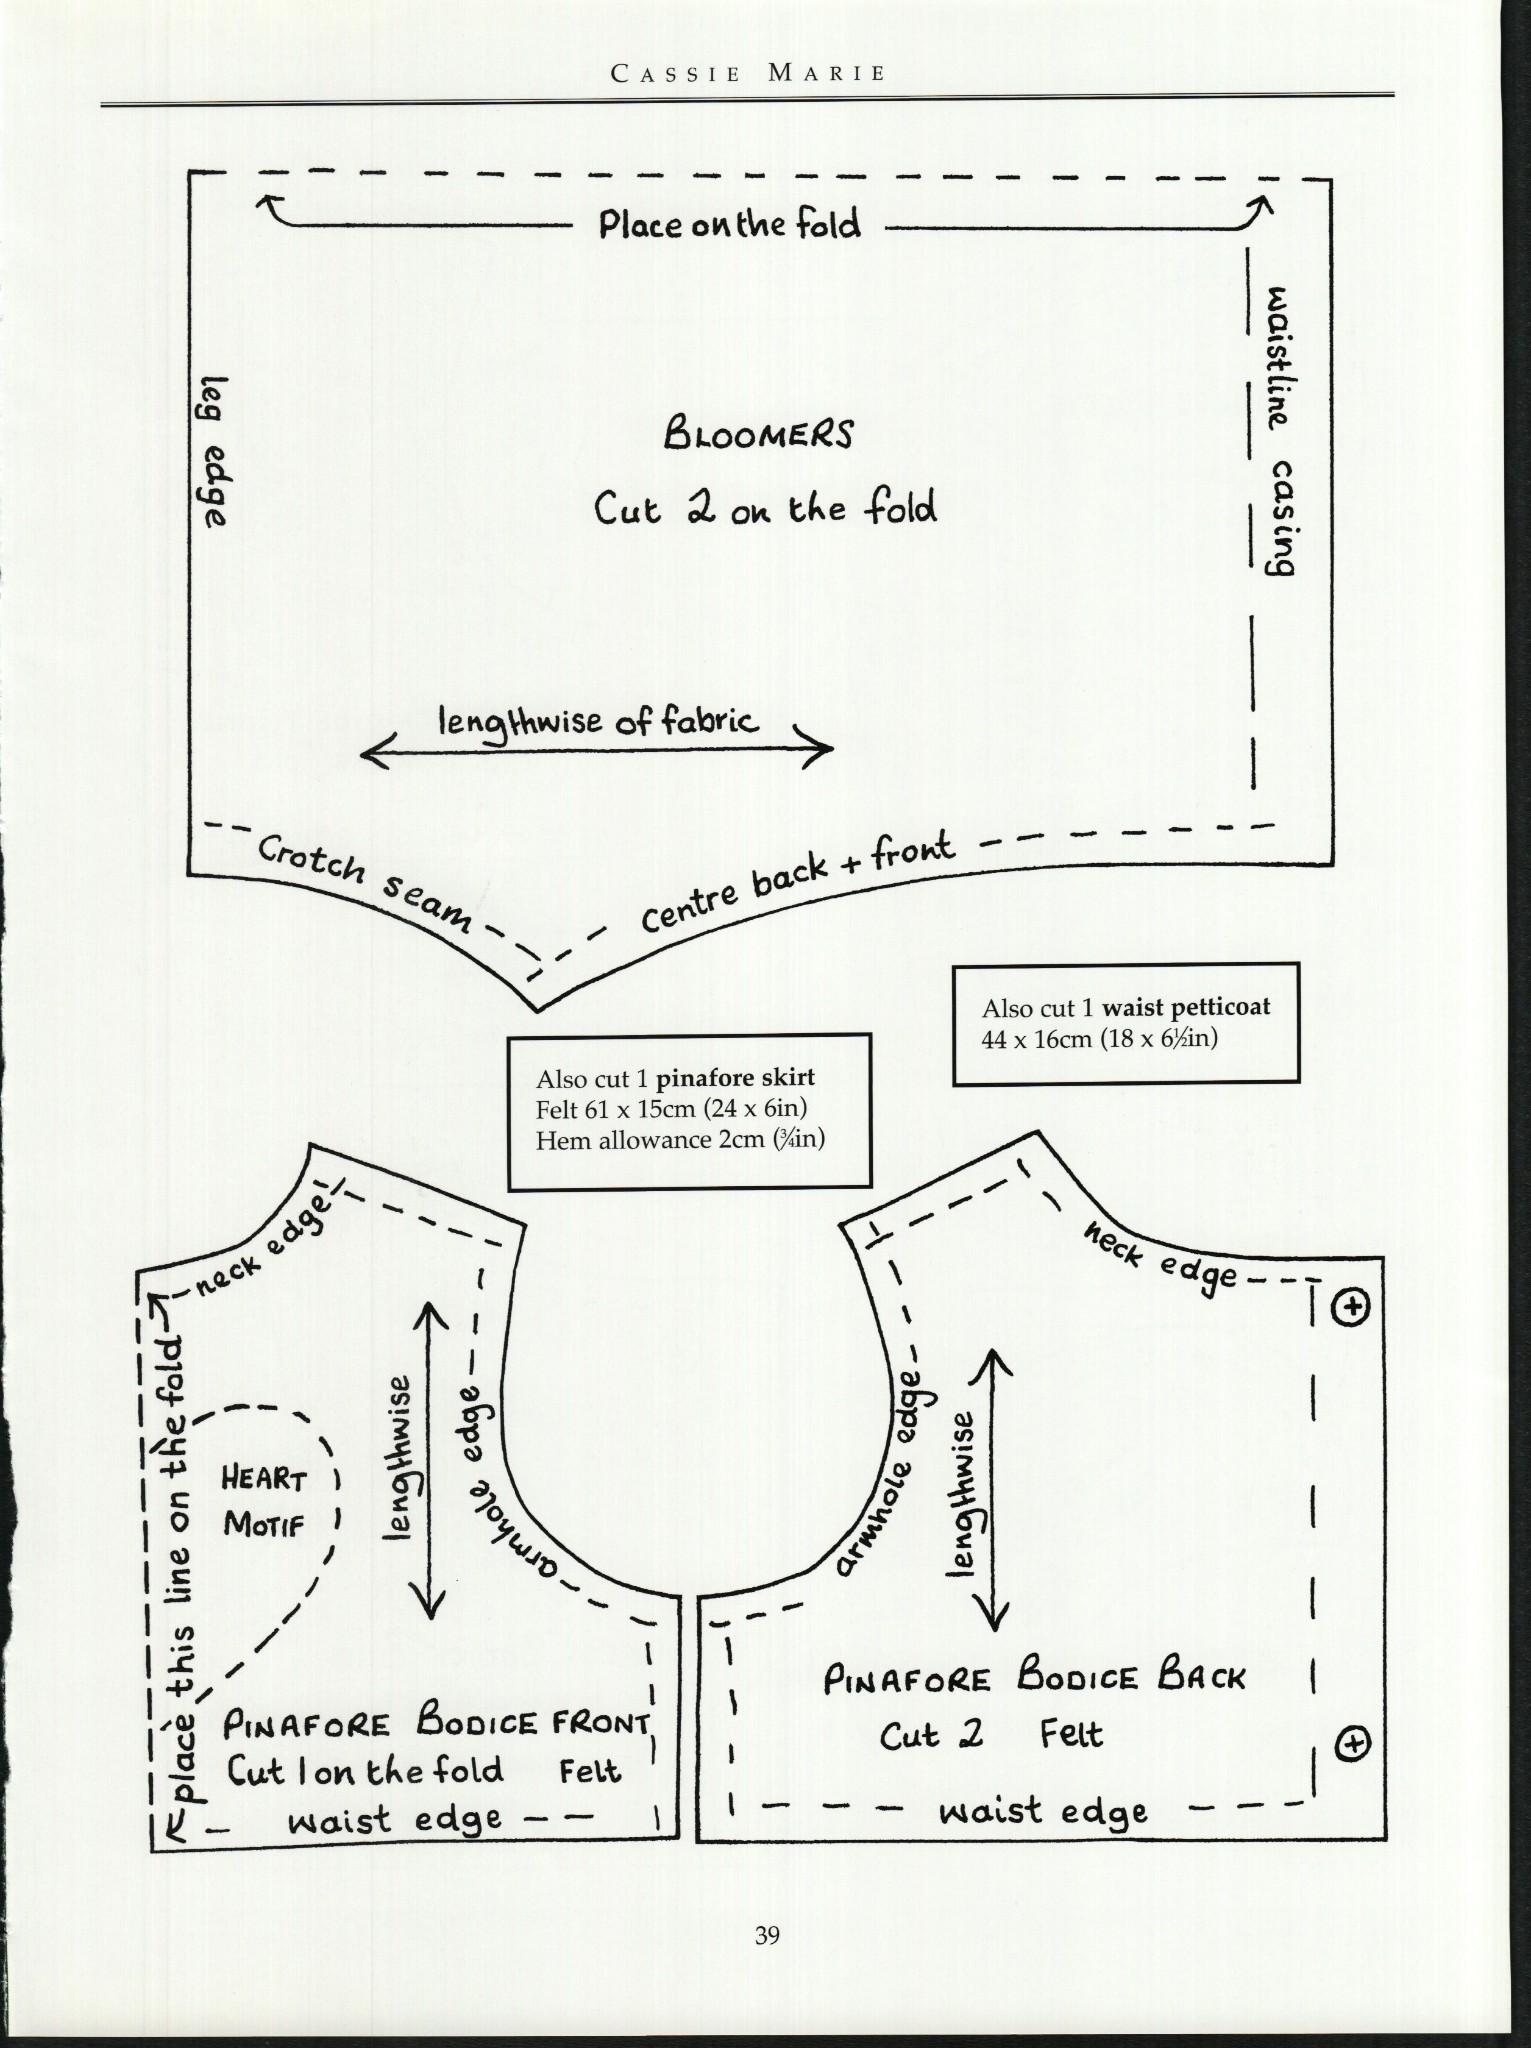 CASSIE MARIE
Place on the fold
leg edge
waistline casing
BLOOMERS
Cut 2 on the fold
lengthwise of fabric
Crotch seam
centre back + front
Also cut 1 waist petticoat
44 x 16cm (18 x 6½in)
Also cut 1 pinafore skirt
Felt 61 x 15cm (24 x 6in)
Hem allowance 2cm (¾in)
neck edge
place this line on the fold
HEART
MOTIF
lengthwise
armhole edge
PINAFORE BODICE FRONT
Cut 1 on the fold Felt
waist edge
neck edge
armhole edge
lengthwise
PINAFORE BODICE BACK
Cut 2 Felt
waist edge
39